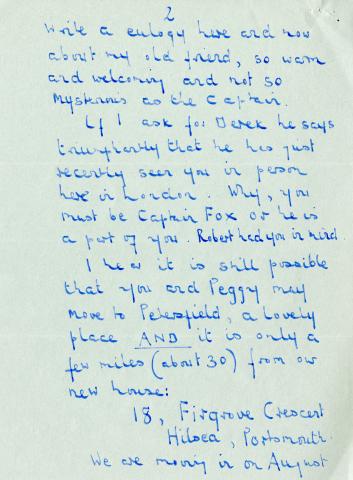 2
Write a eulogy here and now
about my old friend, so warm
and welcoming and not so
mysterious as the Captain.
If I ask for Derek he says
triumphantly that he has just
recently seen you in person
here in London. Why, you
must be Captain Fox or he is
a part of you. Robert had you in mind.
I hear it is still possible
that you and Peggy may
move to Petersfield, a lovely
place AND it is only a
few miles (about 30) from our
new house:
18, Firgrove Crescent
Hilsea, Portsmouth.
We are moving in on August